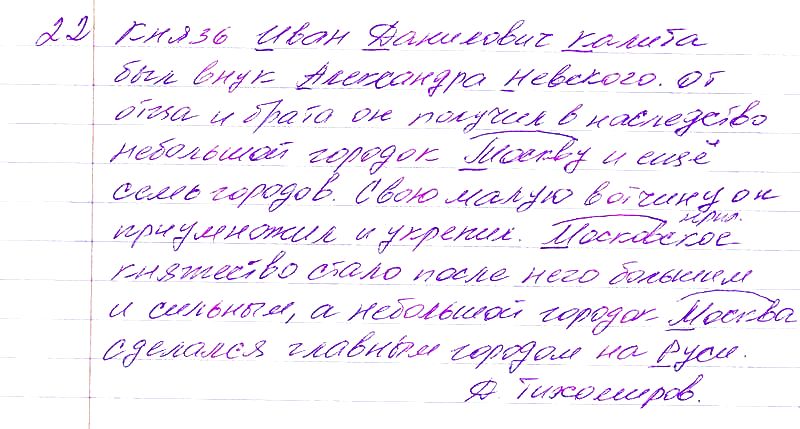 22 Князь Иван Данилович Калита
был внук Александра Невского. От
отца и брата он получил в наследство
небольшой городок Москву и ещё
семь городов. Свою малую вотчину он
прил.
приумножил и укрепил. Московское
княжество стало после него большим
и сильным, а небольшой городок Москва
сделался главным городом на Руси.
Д. Тихомиров.